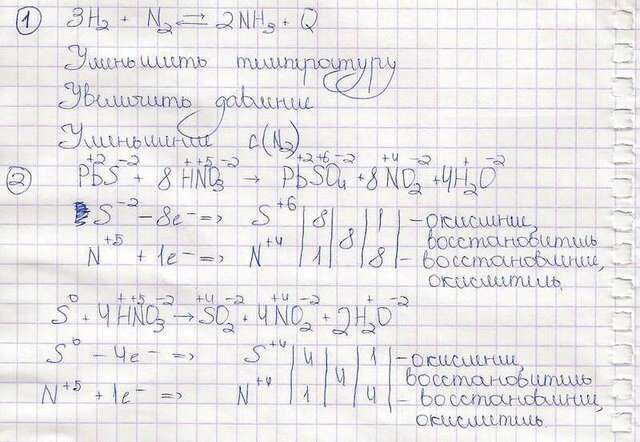 ① 3H₂ + N₂ ⇄ 2NH₃ + Q
Уменьшить температуру
Увеличить давление
Уменьшение c(N₂)
② Pb⁺²S⁻² + 8H⁺N⁺⁵O₃⁻² → Pb⁺²S⁺⁶O₄⁻² + 8N⁺⁴O₂⁻² + 4H₂⁺O⁻²
S⁻² – 8e⁻ => S⁺⁶ | 8 | 8 | 1 | – окисление, восстановитель
N⁺⁵ + 1e⁻ => N⁺⁴ | 1 | 8 | – восстановление, окислитель.
S⁰ + 4H⁺N⁺⁵O₃⁻² → S⁺⁴O₂⁻² + 4N⁺⁴O₂⁻² + 2H₂⁺O⁻²
S⁰ – 4e⁻ => S⁺⁴ | 4 | 4 | 1 | – окисление, восстановитель
N⁺⁵ + 1e⁻ => N⁺⁴ | 1 | 4 | – восстановление, окислитель.